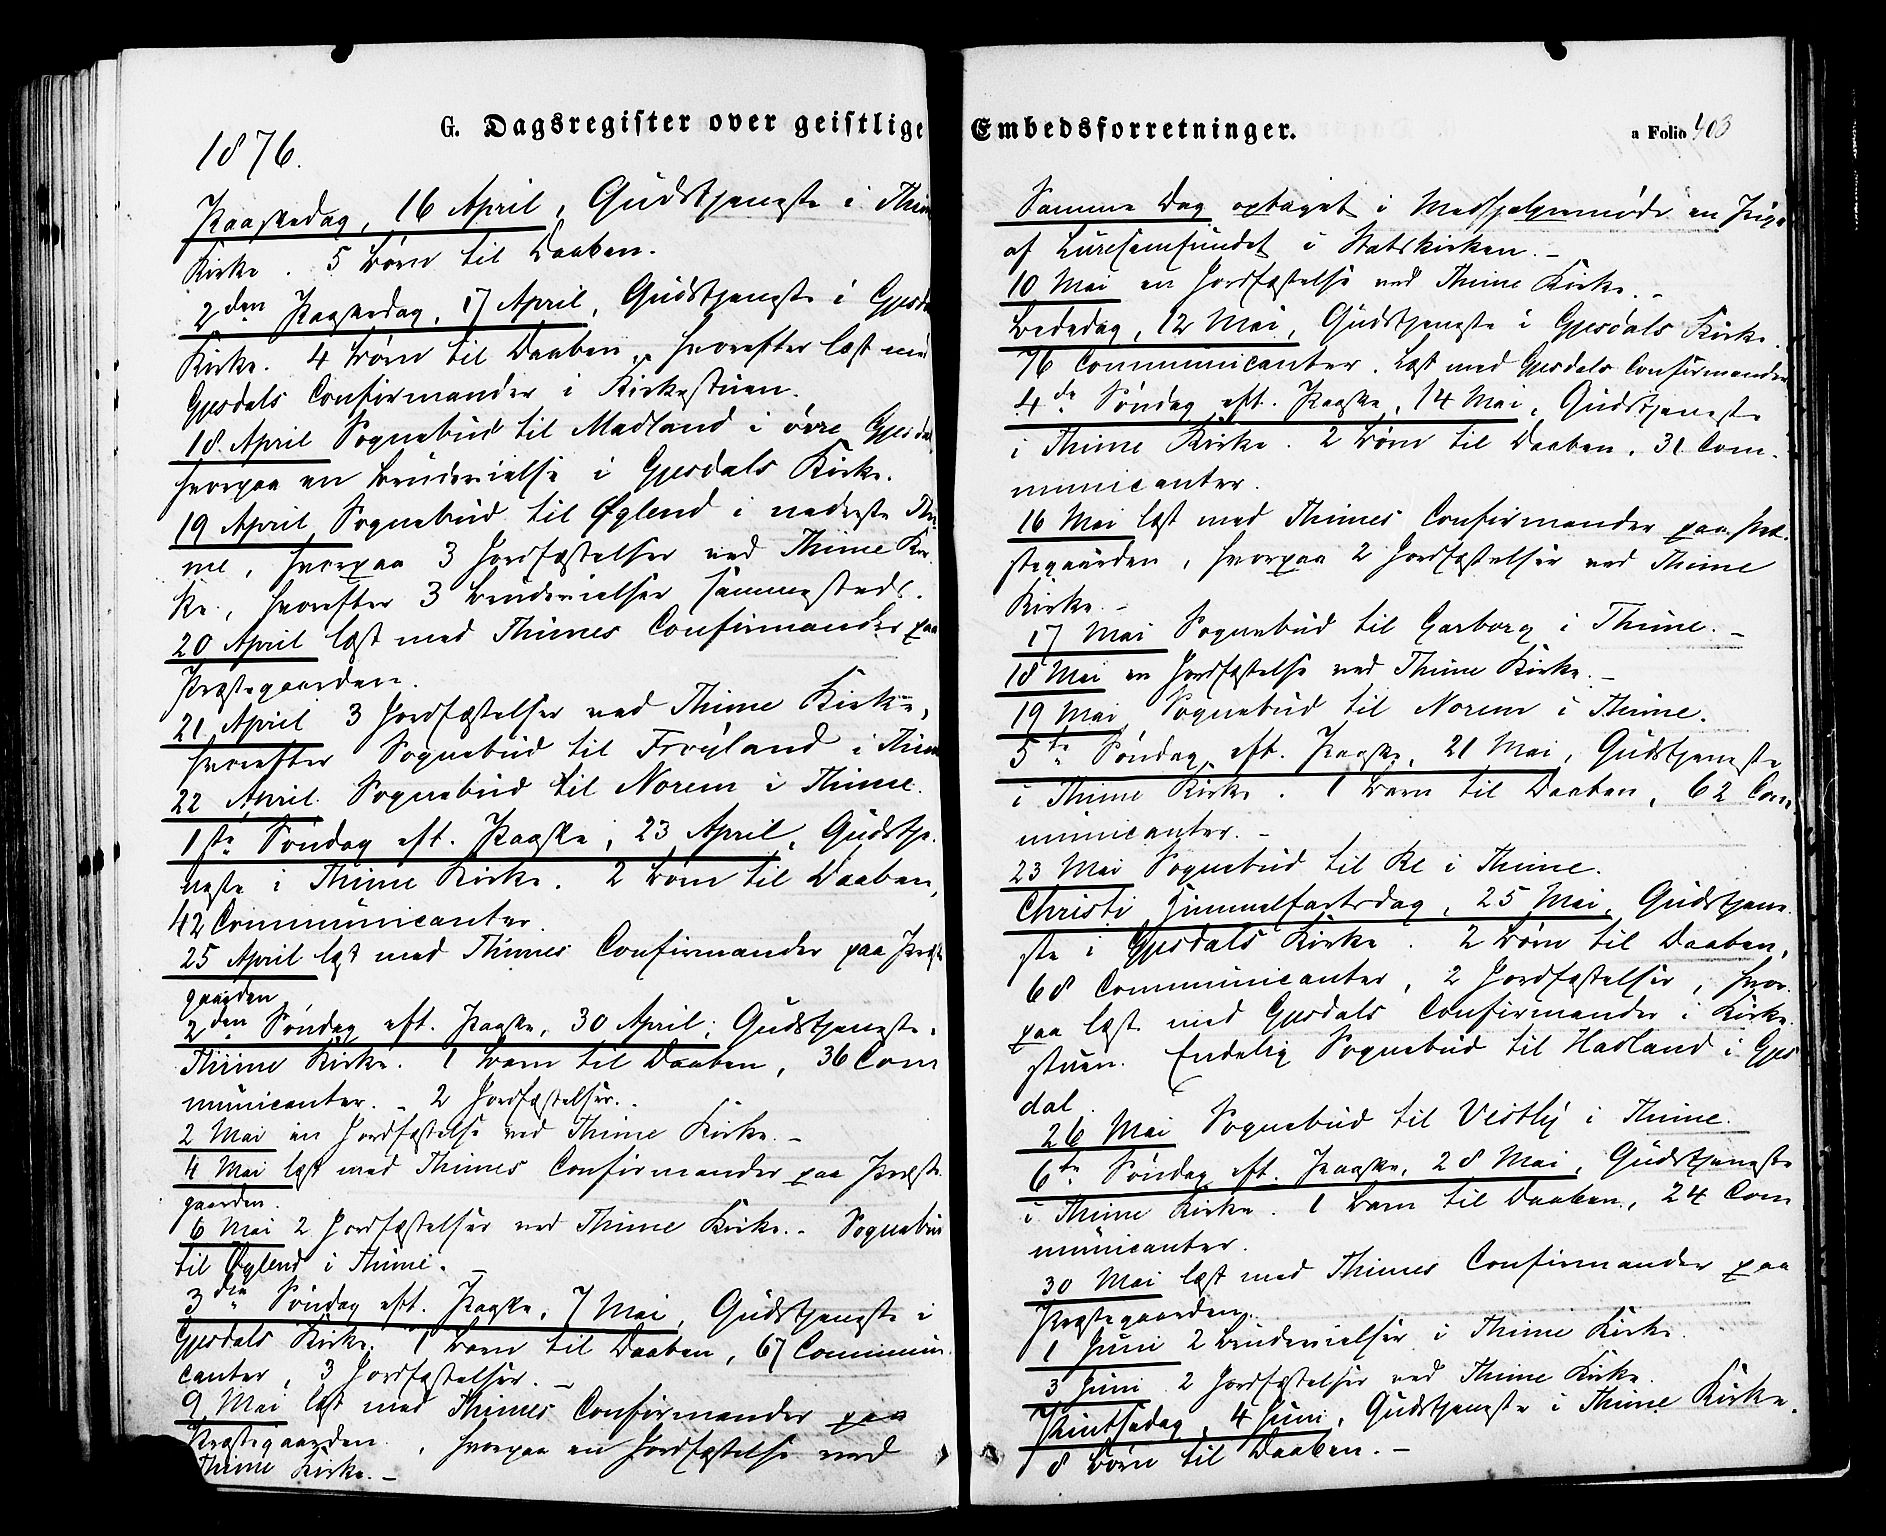 G. Dagsregister over geistlige Embedsforretninger.
a Folio 403
1876.
Paaskedag, 16 April, Gudstjeneste i Thime
Kirke. 5 Børn til Daaben.
2den Paaskedag, 17 April, Gudstjeneste i Gjesdals
Kirke. 4 Børn til Daaben, hvorefter læst med
Gjesdals Confirmander i Kirkestuen.
18 April Sognebud til Madland i øvre Gjesdal
hvorpaa en Brudevielse i Gjesdals Kirke.
19 April Sognebud til Øglend i nederste Thi-
me, hvorpaa 3 Jordfæstelser ved Thime Kir-
ke, hvorefter 3 Brudevielser sammesteds.
20 April læst med Thimes Confirmander paa
Præstegaarden.
21 April 3 Jordfæstelser ved Thime Kirke,
hvorefter Sognebud til Frøyland i Thime
22 April Sognebud til Norem i Thime.
1ste Søndag eft. Paaske, 23 April, Gudstje-
neste i Thime Kirke. 2 Børn til Daaben,
42 Communicanter.
25 April læst med Thimes Confirmander paa Præste
gaarden
2den Søndag eft. Paaske, 30 April, Gudstjeneste i
Thime Kirke. 1 Barn til Daaben, 36 Com
municanter. – 2 Jordfæstelser. –
2 Mai en Jordfæstelse ved Thime Kirke. –
4 Mai læst med Thimes Confirmander paa Præste
gaarden.
6 Mai 2 Jordfæstelser ved Thime Kirke. – Sognebud
til Øglend i Thime. –
3die Søndag eft. Paaske, 7 Mai, Gudstjeneste i
Gjesdals Kirke. 1 Barn til Daaben, 67 Communi
canter, 3 Jordfæstelser. –
9 Mai læst med Thimes Confirmander paa
Præstegaarden, hvorpaa en Jordfæstelse ved
Thime Kirke. –
Samme Dag optaget i Medhjelpermøde en Pige
af Luresamfundet i Statskirken. –
10 Mai en Jordfæstelse ved Thime Kirke. –
Bededag, 12 Mai, Gudstjeneste i Gjesdals Kirke.
76 Communicanter. Læst med Gjesdals Confirmander
4de Søndag eft. Paaske, 14 Mai, Gudstjeneste
i Thime Kirke. 2 Børn til Daaben, 31 Com-
municanter.
16 Mai læst med Thimes Confirmander paa Præ-
stegaarden, hvorpaa 2 Jordfæstelser ved Thime
Kirke. –
17 Mai Sognebud til Garborg i Thime. –
18 Mai en Jordfæstelse ved Thime Kirke. –
19 Mai Sognebud til Norem i Thime.
5te Søndag eft. Paaske, 21 Mai, Gudstjeneste
i Thime Kirke. 1 Barn til Daaben, 62 Com-
municanter. –
23 Mai Sognebud til Re i Thime.
Christi Himmelfartsdag, 25 Mai, Gudstjene
ste i Gjesdals Kirke. 2 Børn til Daaben,
68 Communicanter, 2 Jordfæstelser, hvor-
paa læst med Gjesdals Confirmander i Kirke
stuen. Endelig Sognebud til Hadland i Gjes
dal.
26 Mai Sognebud til Vestly i Thime.
6te Søndag eft. Paaske, 28 Mai, Gudstjeneste
i Thime Kirke. 1 Barn til Daaben, 24 Com
municanter.
30 Mai læst med Thimes Confirmander paa
Præstegaarden.
1 Juni 2 Brudevielser i Thime Kirke.
3 Juni 2 Jordfæstelser ved Thime Kirke.
Pintsedag, 4 Juni, Gudstjeneste i Thime Kirke.
8 Børn til Daaben. –